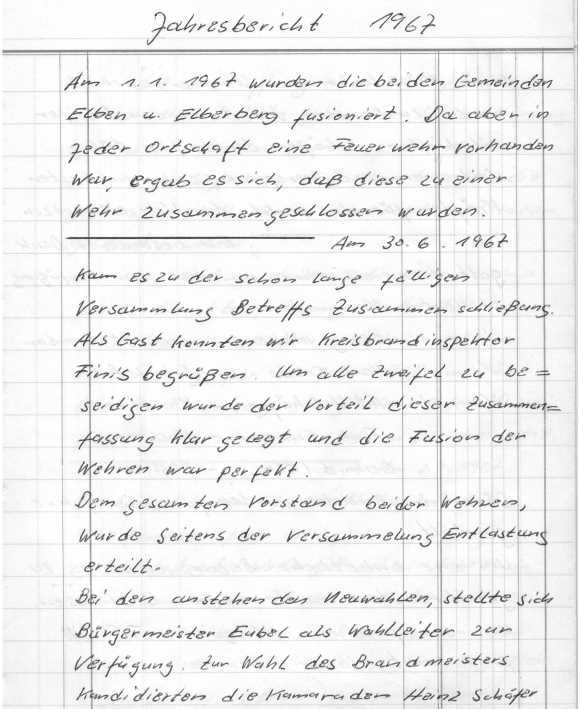 Jahresbericht 1967
Am 1.1. 1967 wurden die beiden Gemeinden
Elben u. Elberberg fusioniert. Da aber in
jeder Ortschaft eine Feuerwehr vorhanden
war, ergab es sich, daß diese zu einer
Wehr zusammengeschlossen wurden.
Am 30.6. 1967
kam es zu der schon lange fälligen
Versammlung Betreffs Zusammenschließung.
Als Gast konnten wir Kreisbrandinspektor
Finis begrüßen. Um alle Zweifel zu be=
seidigen wurde der Vorteil dieser Zusammen=
fassung klar gelegt und die Fusion der
Wehren war perfekt.
Dem gesamten Vorstand beider Wehren,
wurde Seitens der Versammelung Entlastung
erteilt.
Bei den anstehenden Neuwahlen, stellte sich
Bürgermeister Eubel als Wahlleiter zur
Verfügung. Zur Wahl des Brandmeisters
Kandidierten die Kamaraden Heinz Schäfer